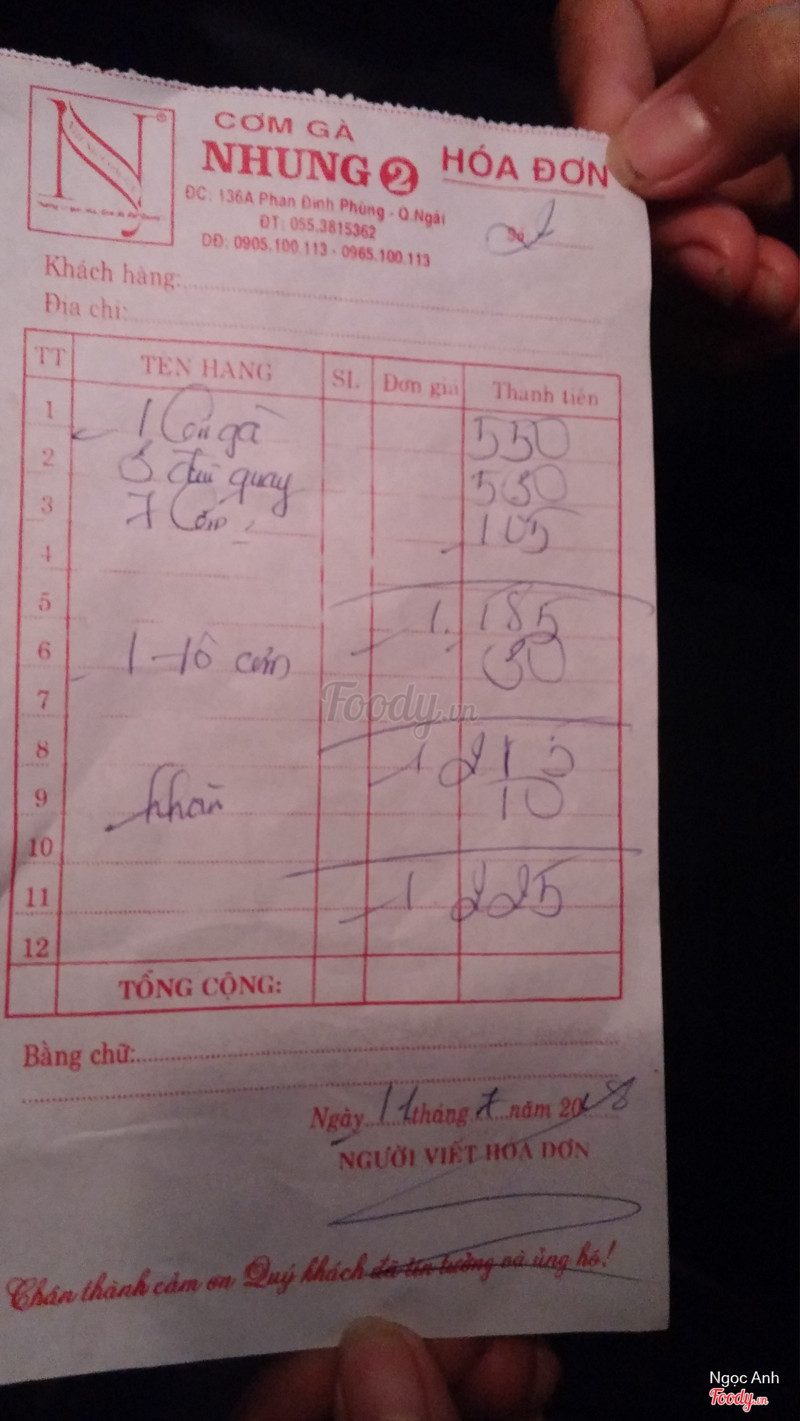 CƠM GÀ
NHUNG 2
HÓA ĐƠN
ĐC: 136A Phan Đình Phùng - Q.Ngãi
ĐT: 055.3815362
DĐ: 0905.100.113 - 0965.100.113
Số
Khách hàng:
Địa chỉ:
TT TÊN HÀNG SL Đơn giá Thành tiền
1 1 Con gà 550
2 đùi quay 530
3 7 Cơm 105
4
5 1.185
6 1 tô cơm 30
7
8 1 215
9 khăn 10
10
11 1 225
12
TỔNG CỘNG:
Bằng chữ:
Ngày 11 tháng 7 năm 2018
NGƯỜI VIẾT HÓA ĐƠN
Chân thành cảm ơn Quý khách đã tin tưởng và ủng hộ!
Foody.vn
Ngọc Anh
Foody.vn